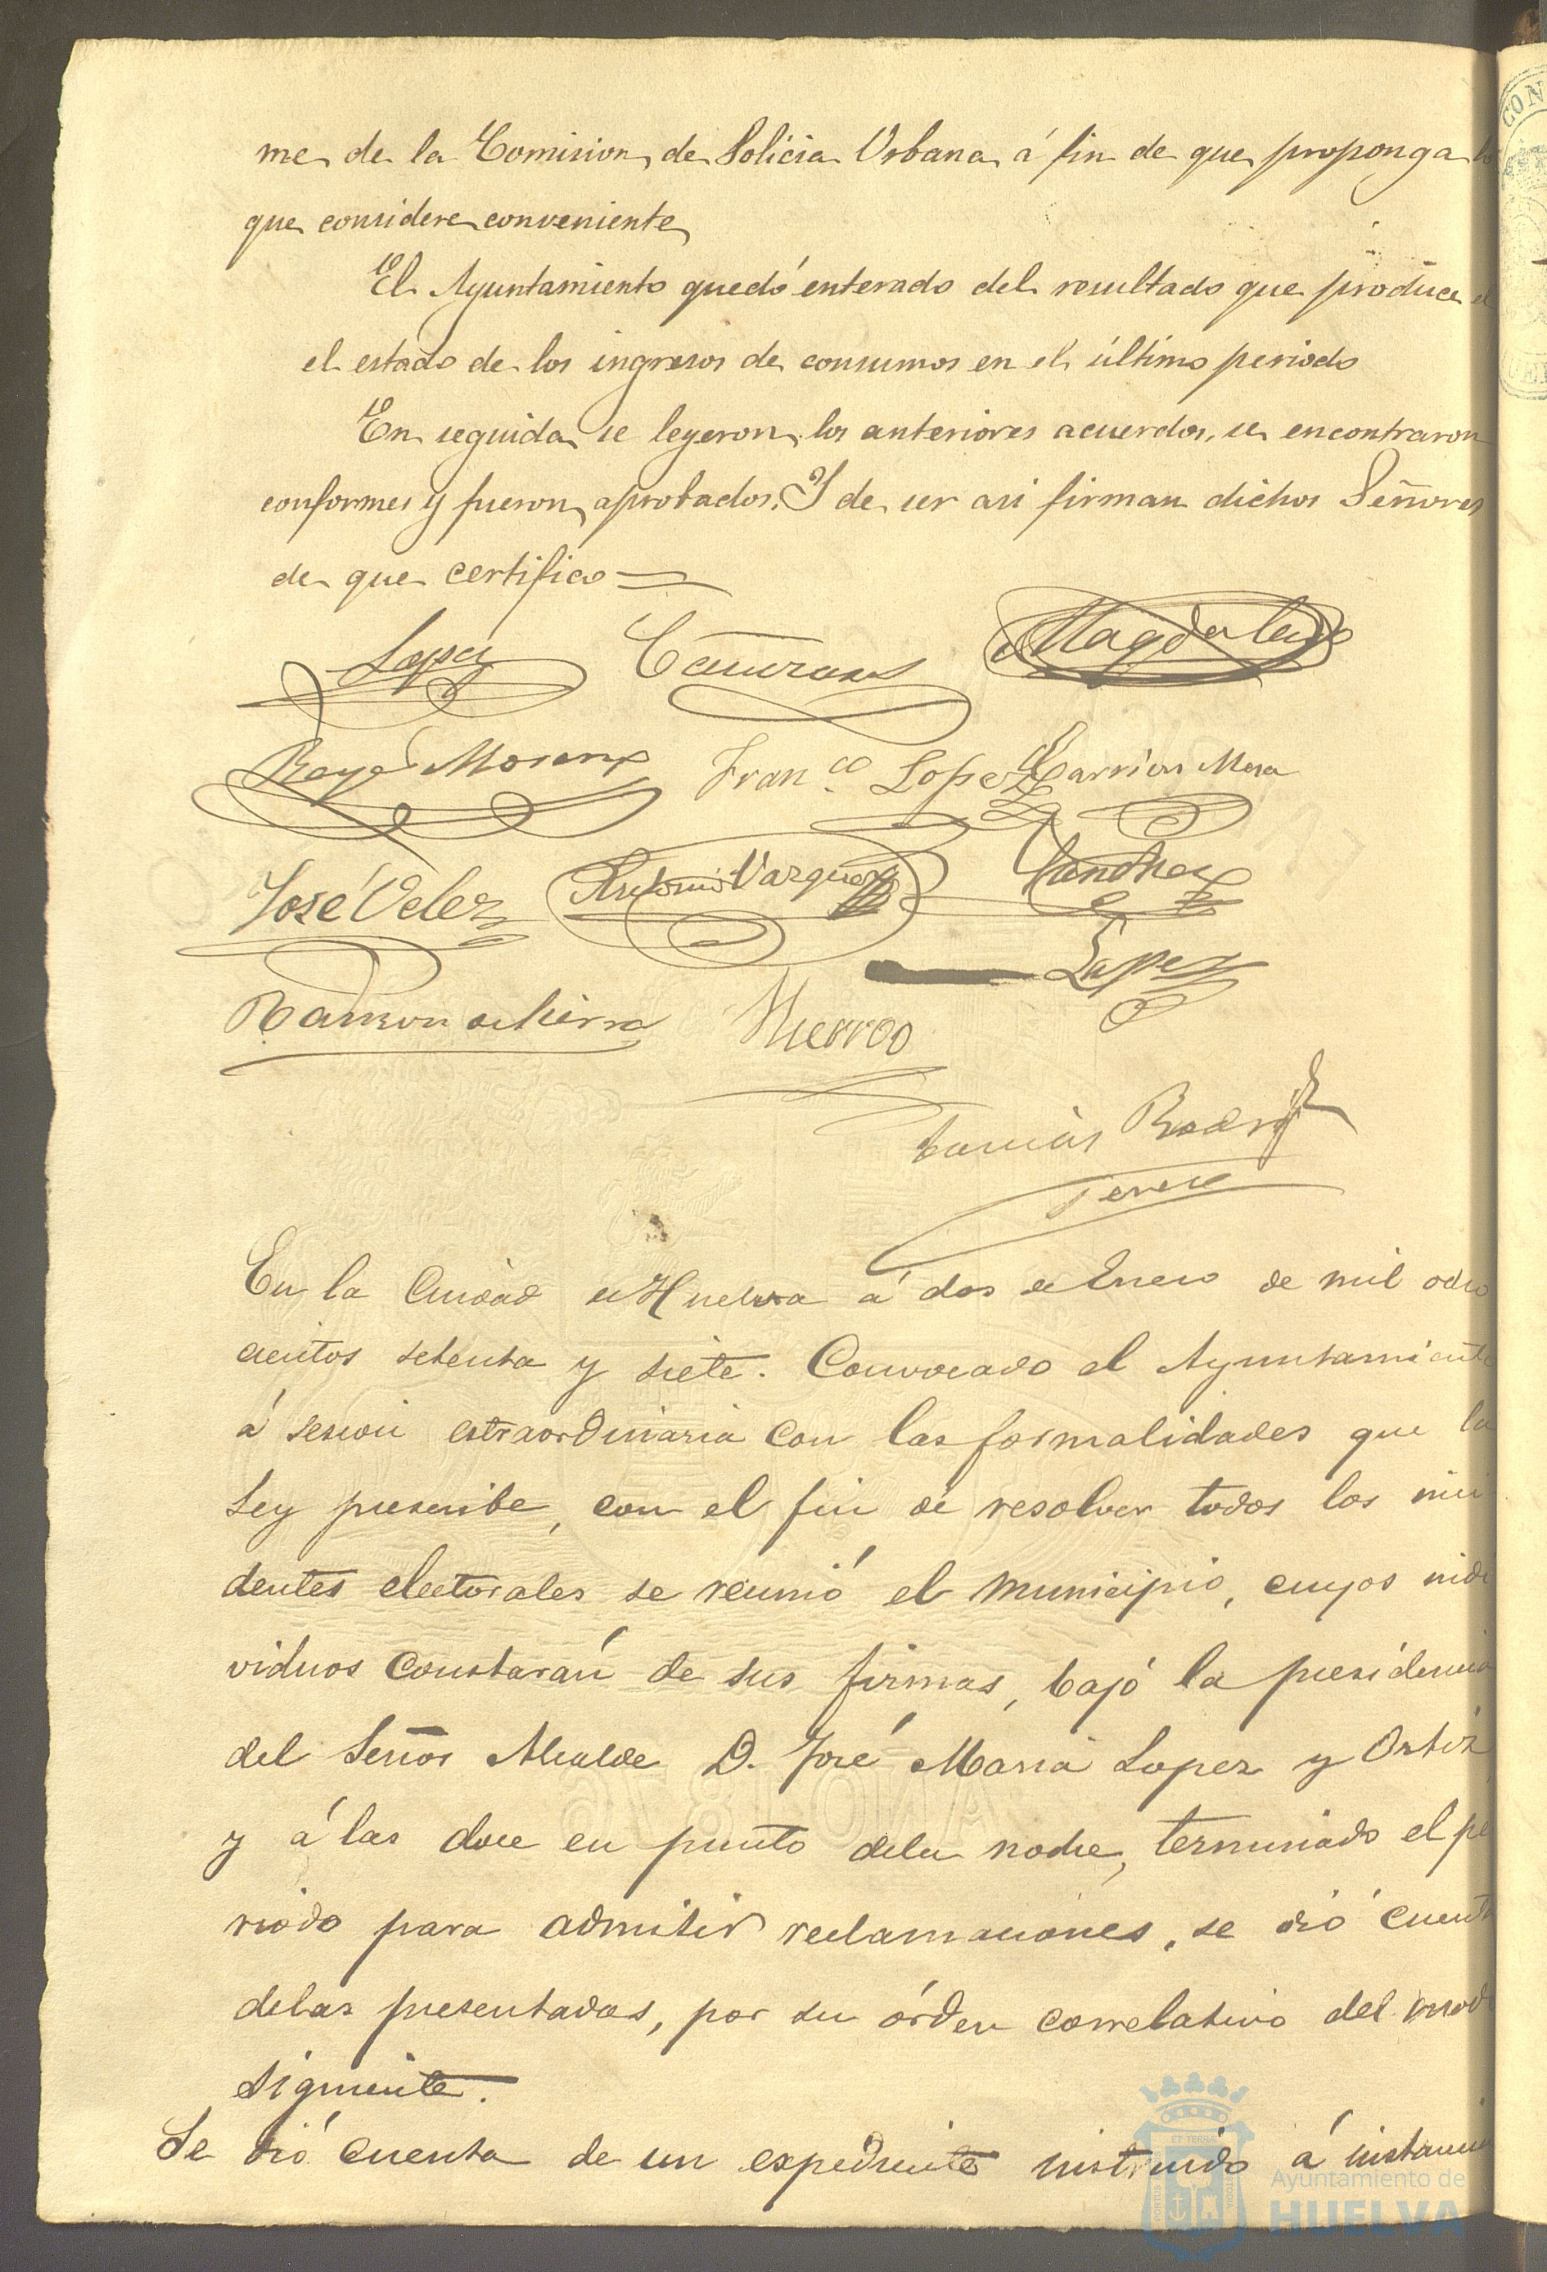 me de la Comision de Policia Urbana á fin de que proponga lo
que considere conveniente
El Ayuntamiento quedó enterado del resultado que produce el
el estado de los ingresos de consumos en el último periodo
En seguida se leyeron los anteriores acuerdos, se encontraron
conformes y fueron aprobados. Y de ser asi firman dichos Señores
de que certifico =
Lopez Magdaleno
Moreno Fran.co Lopez Barrios Mesa
José Velez Antonio Vazquez Sanchez
Lopez
Ramon de Sierra Hierro
Tomás Rodrig
En la Ciudad de Huelva á dos de Enero de mil ocho
cientos setenta y siete. Convocado el Ayuntamiento
á sesion estraordinaria con las formalidades que la
Ley prescribe, con el fin de resolver todos los inci
dentes electorales se reunió el Municipio, cuyos indi
viduos constarán de sus firmas, bajó la presidencia
del Señor Alcalde D. José Maria Lopez y Ortiz,
y á las doce en punto dela noche, terminado el pe
riodo para admitir reclamaciones, se dió cuenta
delas presentadas, por su órden correlativo del modo
siguiente.
Se dió cuenta de un expediente instruido á instancia
ET TERRÆ
Ayuntamiento de
HUELVA